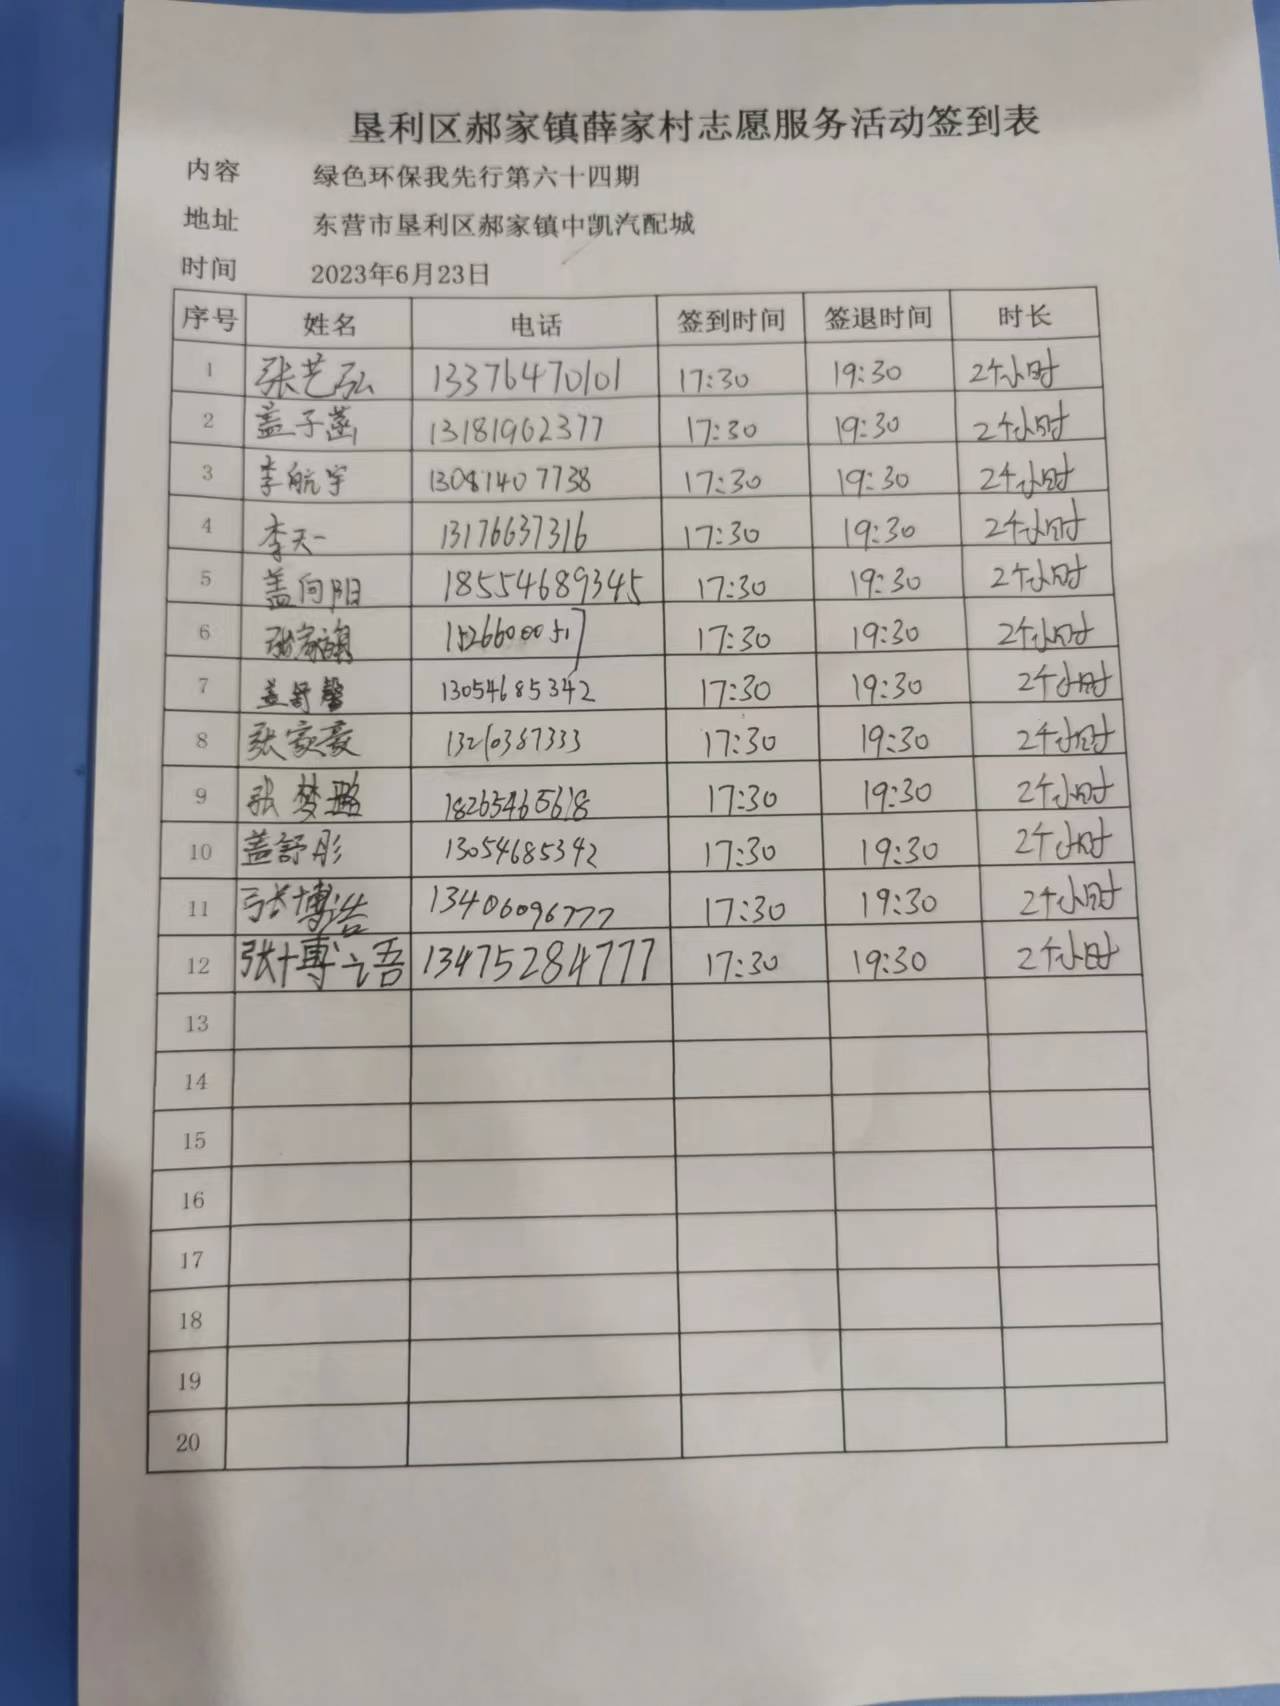 垦利区郝家镇薛家村志愿服务活动签到表
内容 绿色环保我先行第六十四期
地址 东营市垦利区郝家镇中凯汽配城
时间 2023年6月23日
序号 姓名 电话 签到时间 签退时间 时长
1 张艺弘 13376470101 17:30 19:30 2个小时
2 盖子菡 13181962377 17:30 19:30 2个小时
3 李航宇 13081407738 17:30 19:30 2个小时
4 李天一 13176637316 17:30 19:30 2个小时
5 盖向阳 18554689345 17:30 19:30 2个小时
6 张家旗 17:30 19:30 2个小时
7 盖舒馨 13054685342 17:30 19:30 2个小时
8 张家豪 17:30 19:30 2个小时
9 张梦璐 18265465618 17:30 19:30 2个小时
10 盖舒彤 13054685342 17:30 19:30 2个小时
11 张博浩 13406096777 17:30 19:30 2个小时
12 张博语 13475284777 17:30 19:30 2个小时
13
14
15
16
17
18
19
20